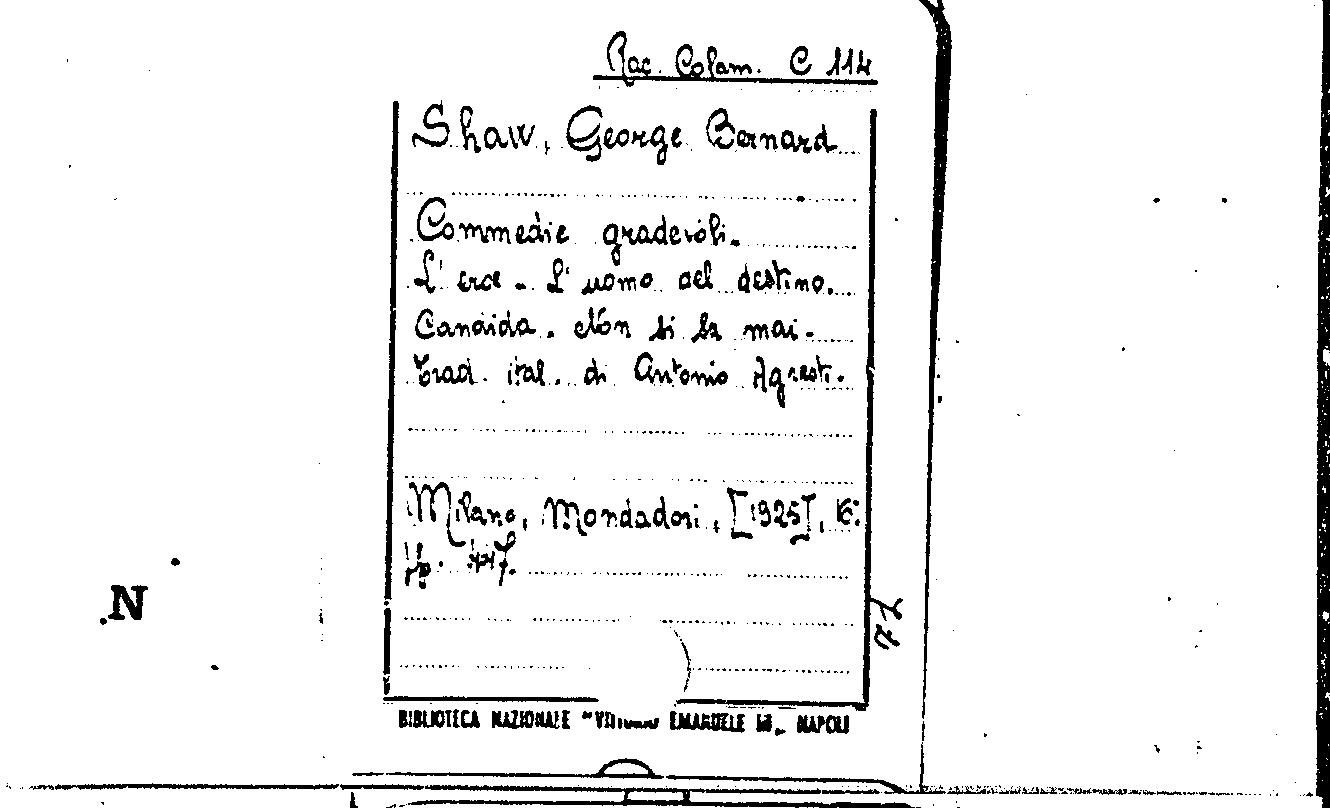 Rac. Colam. C 114
Shaw, George Bernard
Commedie gradevoli.
L'eroe - L'uomo del destino.
Candida. Non si sa mai.
Trad. ital. di Antonio Agresti.
Milano, Mondadori, [1925], 16°.
pp. 447.
77
N
BIBLIOTECA NAZIONALE "VITTORIO EMANUELE III„ NAPOLI